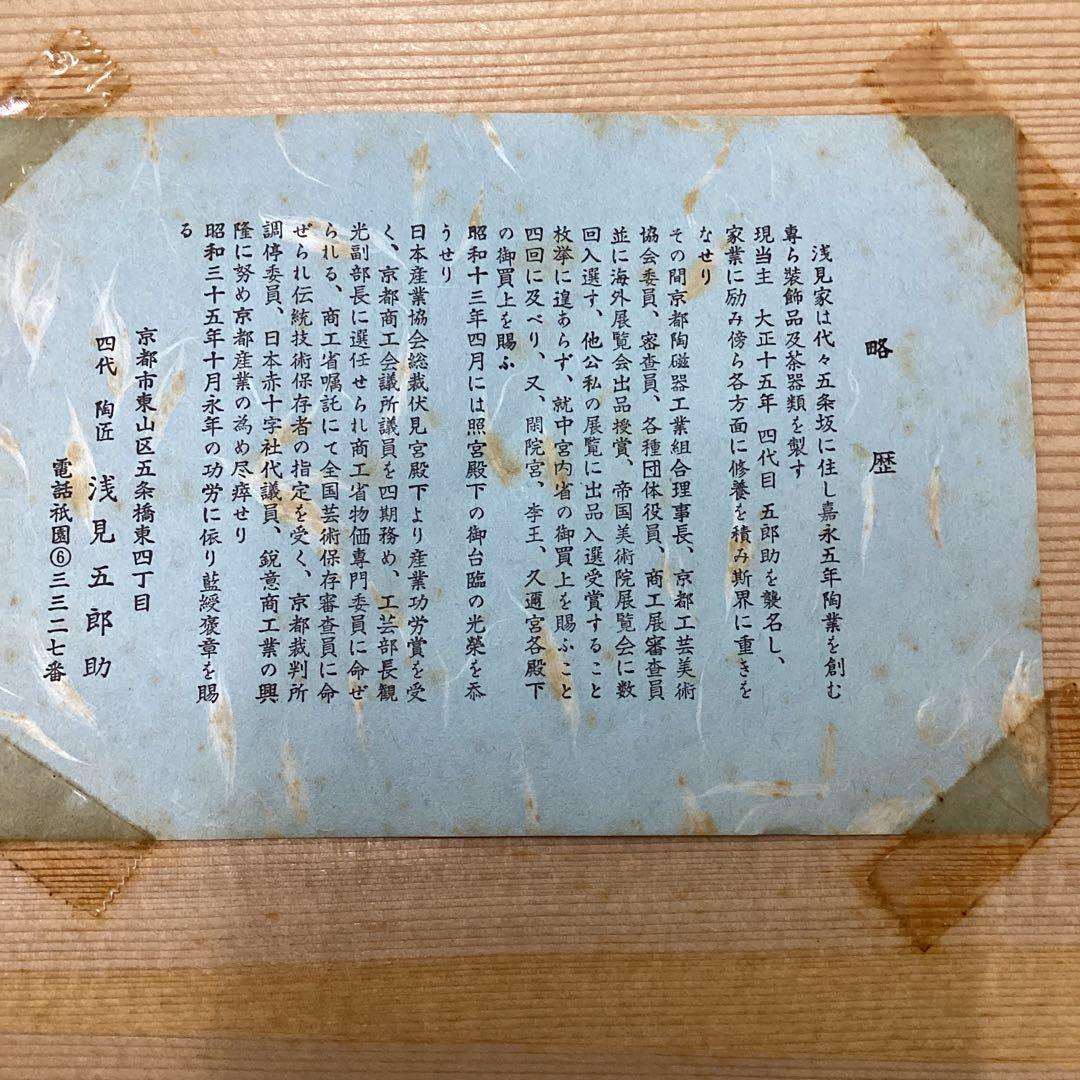 略歴
浅見家は代々五条坂に住し嘉永五年陶業を創む
専ら裝飾品及茶器類を製す
現当主　大正十五年　四代目　五郎助を襲名し、
家業に励み傍ら各方面に修養を積み斯界に重きを
なせり
その間京都陶磁器工業組合理事長、京都工芸美術
協会委員、審査員、各種団体役員、商工展審査員
並に海外展覧会出品授賞、帝国美術院展覧会に数
回入選す、他公私の展覧に出品入選受賞すること
枚挙に遑あらず、就中宮内省の御買上を賜ふこと
四回に及べり、又、閑院宮、李王、久邇宮各殿下
の御買上を賜ふ
昭和十三年四月には照宮殿下の御台臨の光榮を忝
うせり
日本産業協会総裁伏見宮殿下より産業功労賞を受
く、京都商工会議所議員を四期務め、工芸部長観
光副部長に選任せられ商工省物価専門委員に命ぜ
られる、商工省嘱託にて全国芸術保存審査員に命
ぜられ伝統技術保存者の指定を受く、京都裁判所
調停委員、日本赤十字社代議員、鋭意商工業の興
隆に努め京都産業の為め尽瘁せり
昭和三十五年十月永年の功労に依り藍綬褒章を賜
る
京都市東山区五条橋東四丁目
四代　陶匠　浅見五郎助
電話祇園⑥三三二七番